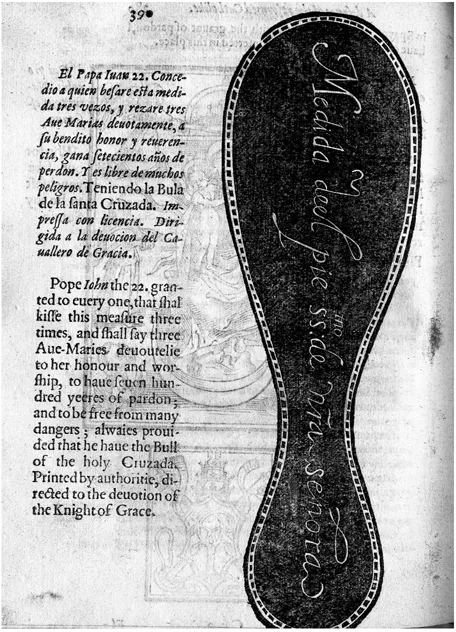 39
El Papa Iuan 22. Conce-
dio a quien beſare eſta medi-
da tres vezos, y rezare tres
Aue Marias deuotamente, a
ſu bendito honor y reueren-
cia, gana ſetecientos años de
perdon. Y es libre de muchos
peligros. Teniendo la Bula
de la ſanta Cruzada. Im-
preſſa con licencia. Diri-
gida a la deuocion del Ca-
uallero de Gracia.
Pope Iohn the 22. gran-
ted to euery one, that ſhal
kiſſe this meaſure three
times, and ſhall ſay three
Aue-Maries deuoutelie
to her honour and wor-
ſhip, to haue ſeuen hun-
dred yeeres of pardon;
and to be free from many
dangers; alwaies proui-
ded that he haue the Bull
of the holy Cruzada.
Printed by authoritie, di-
rected to the deuotion of
the Knight of Grace.
Medida deel pie ss.mo de nr̃a señora